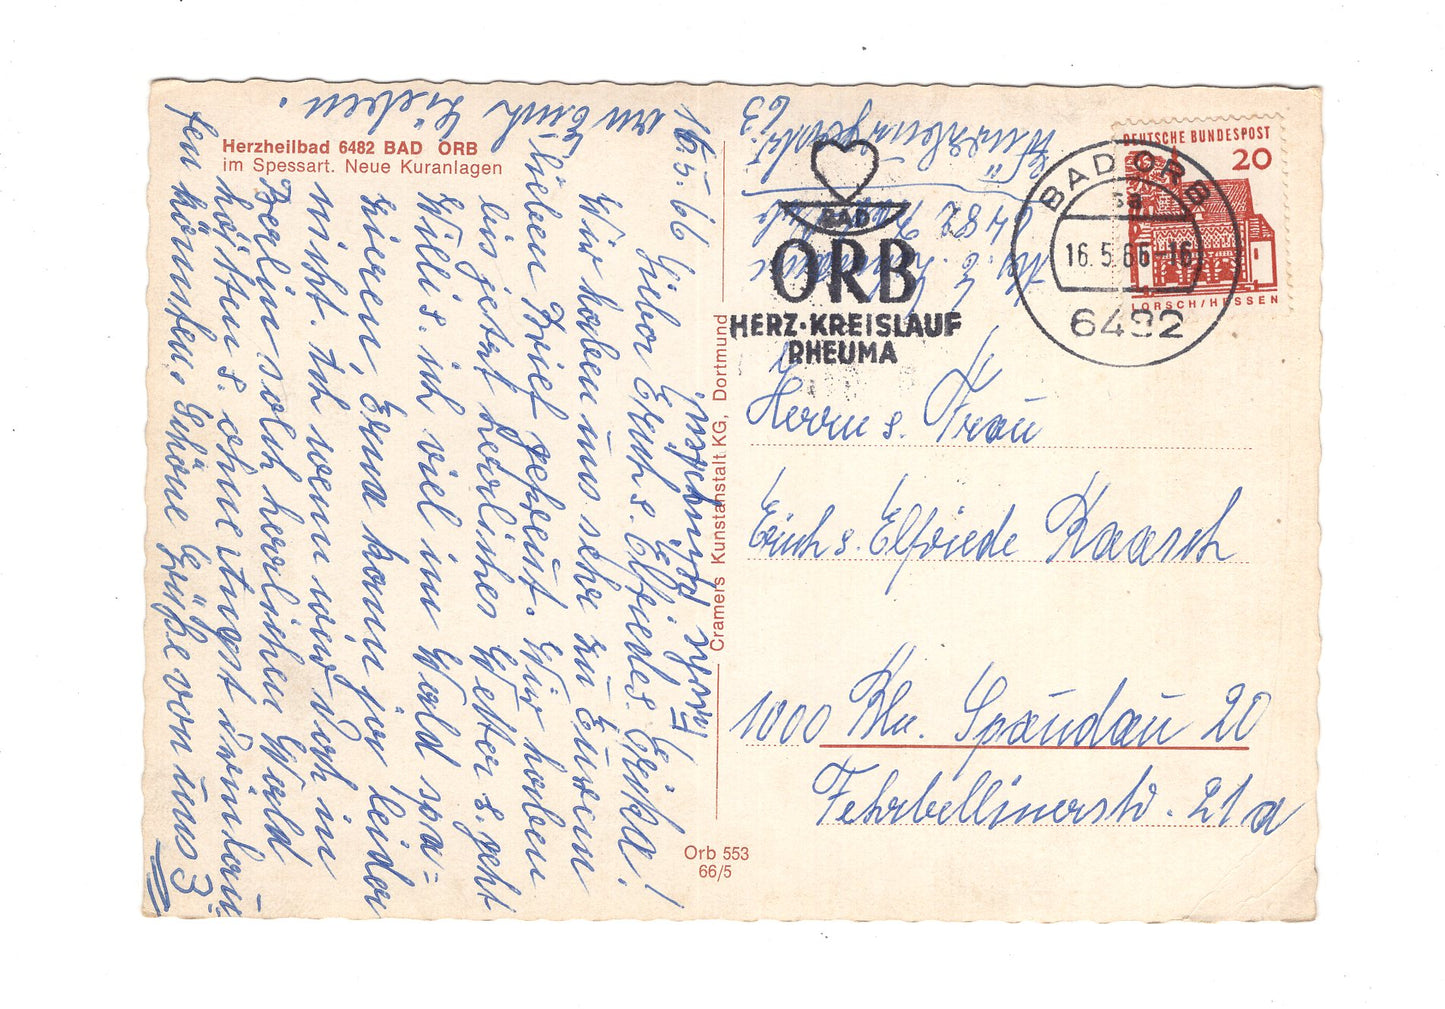 Herzheilbad 6482 BAD ORB
im Spessart. Neue Kuranlagen
16.5.66
Lieber Erich s. Elfriede s. Erika!
Wir haben uns sehr zu Euren
lieben Brief gefreut. Wir haben
bis jetzt herliches Wetter s. geht
Willi s. ich viel im Wald spa=
zieren, Erna kann ja leider
nicht. Ich wenn wird doch in
Berlin solch herrlichen Wald
hätten s. ohne Angst
Schöne Grüße von uns 3
an Euch Lieben.
Cramers Kunstanstalt KG, Dortmund
Orb 553
66/5
BAD
ORB
HERZ-KREISLAUF
RHEUMA
BAD ORB
sa
16.5.66-16
6482
DEUTSCHE BUNDESPOST
20
LORSCH/HESSEN
6482
63
Herrn s. Frau
Erich s. Elfriede Kaasch
1000 Bln. Spandau 20
Fehrbellinerstr. 21a